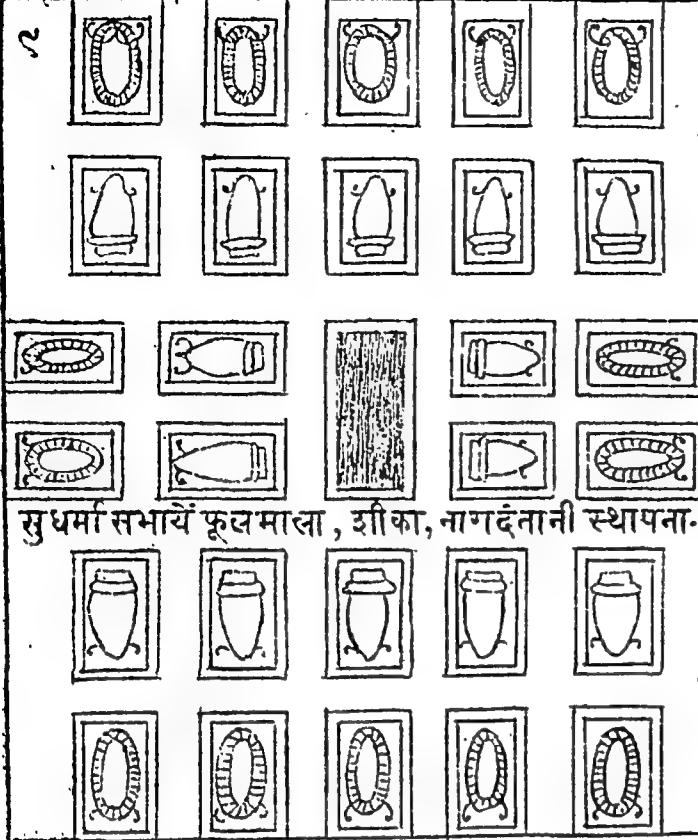 सुधर्मा सभायें फूलमाला, शीका, नागदंतानी स्थापना.